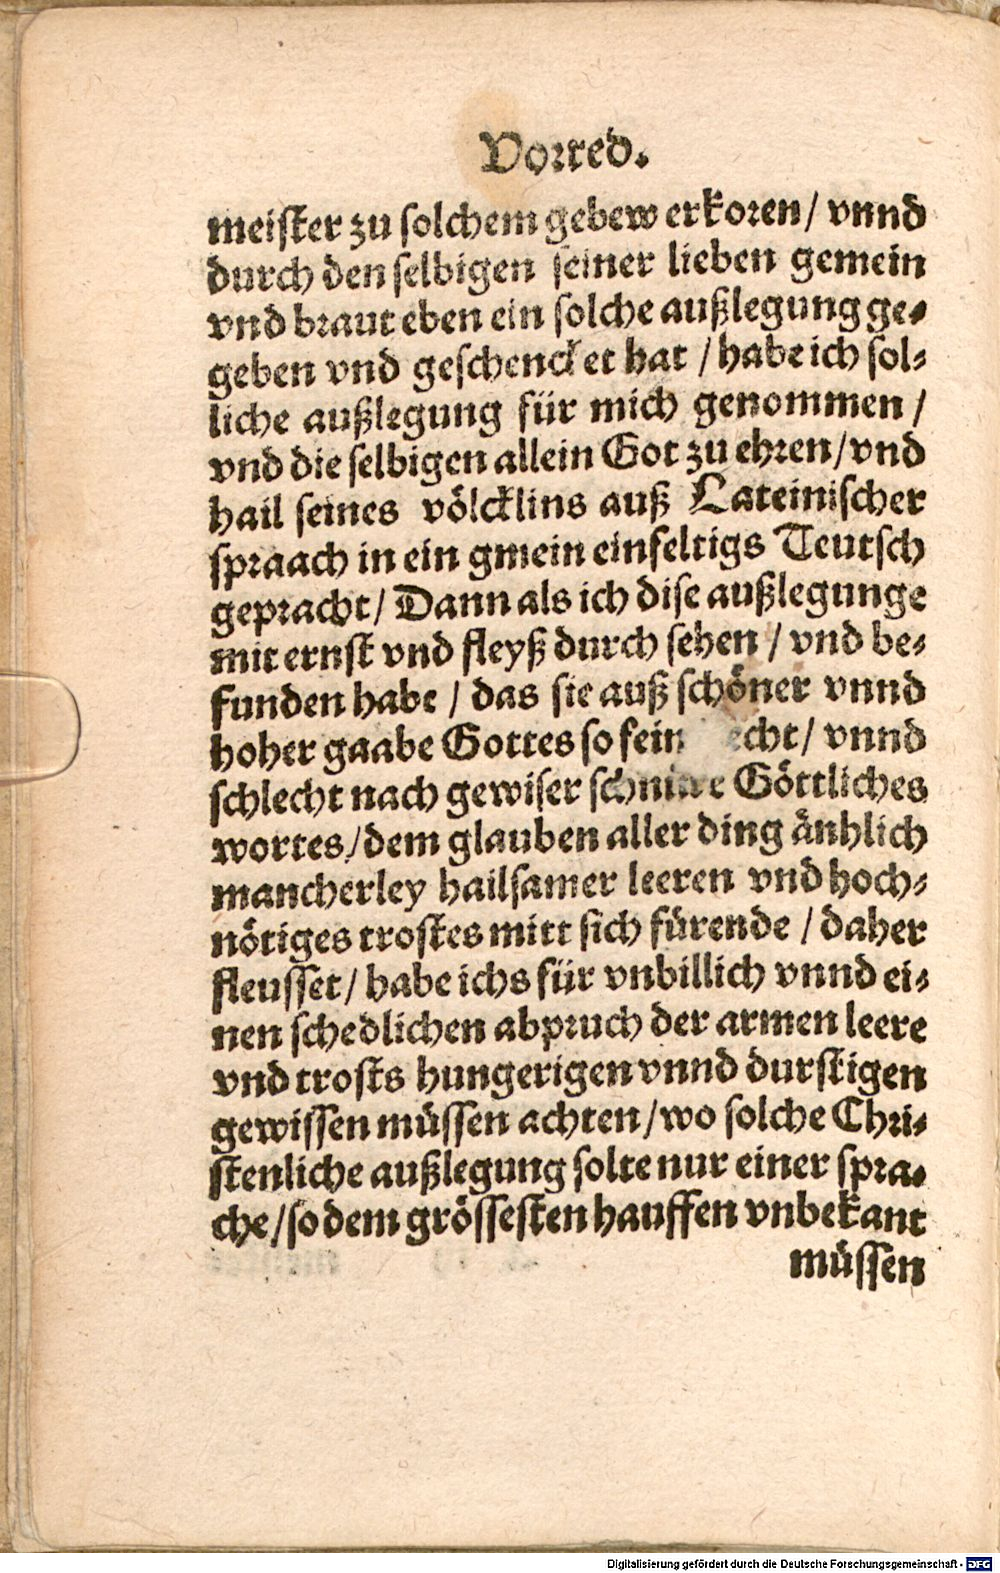 Vorred.
meister zu solchem gebew erkoren / vnnd
durch den selbigen seiner lieben gemein
vnd braut eben ein solche außlegung ge-
geben vnd geschencket hat / habe ich sol-
liche außlegung für mich genommen /
vnd die selbigen allein Got zu ehren / vnd
hail seines völcklins auß Lateinischer
spraach in ein gmein einfeltigs Teutsch
gepracht / Dann als ich dise außlegunge
mit ernst vnd fleyß durch sehen / vnd be-
funden habe / das sie auß schöner vnnd
hoher gaabe Gottes so fein / vnnd
schlecht nach gewiser Göttliches
wortes / dem glauben aller ding änhlich
mancherley hailsamer leeren vnd hoch-
nötiges trostes mitt sich fürende / daher
fleusset / habe ichs für vnbillich vnnd ei-
nen schedlichen abpruch der armen leere
vnd trosts hungerigen vnnd durstigen
gewissen müssen achten / wo solche Chri-
stenliche außlegung solte nur einer spra-
che / so dem grössesten hauffen vnbekant
müssen
Digitalisierung gefördert durch die Deutsche Forschungsgemeinschaft - DFG